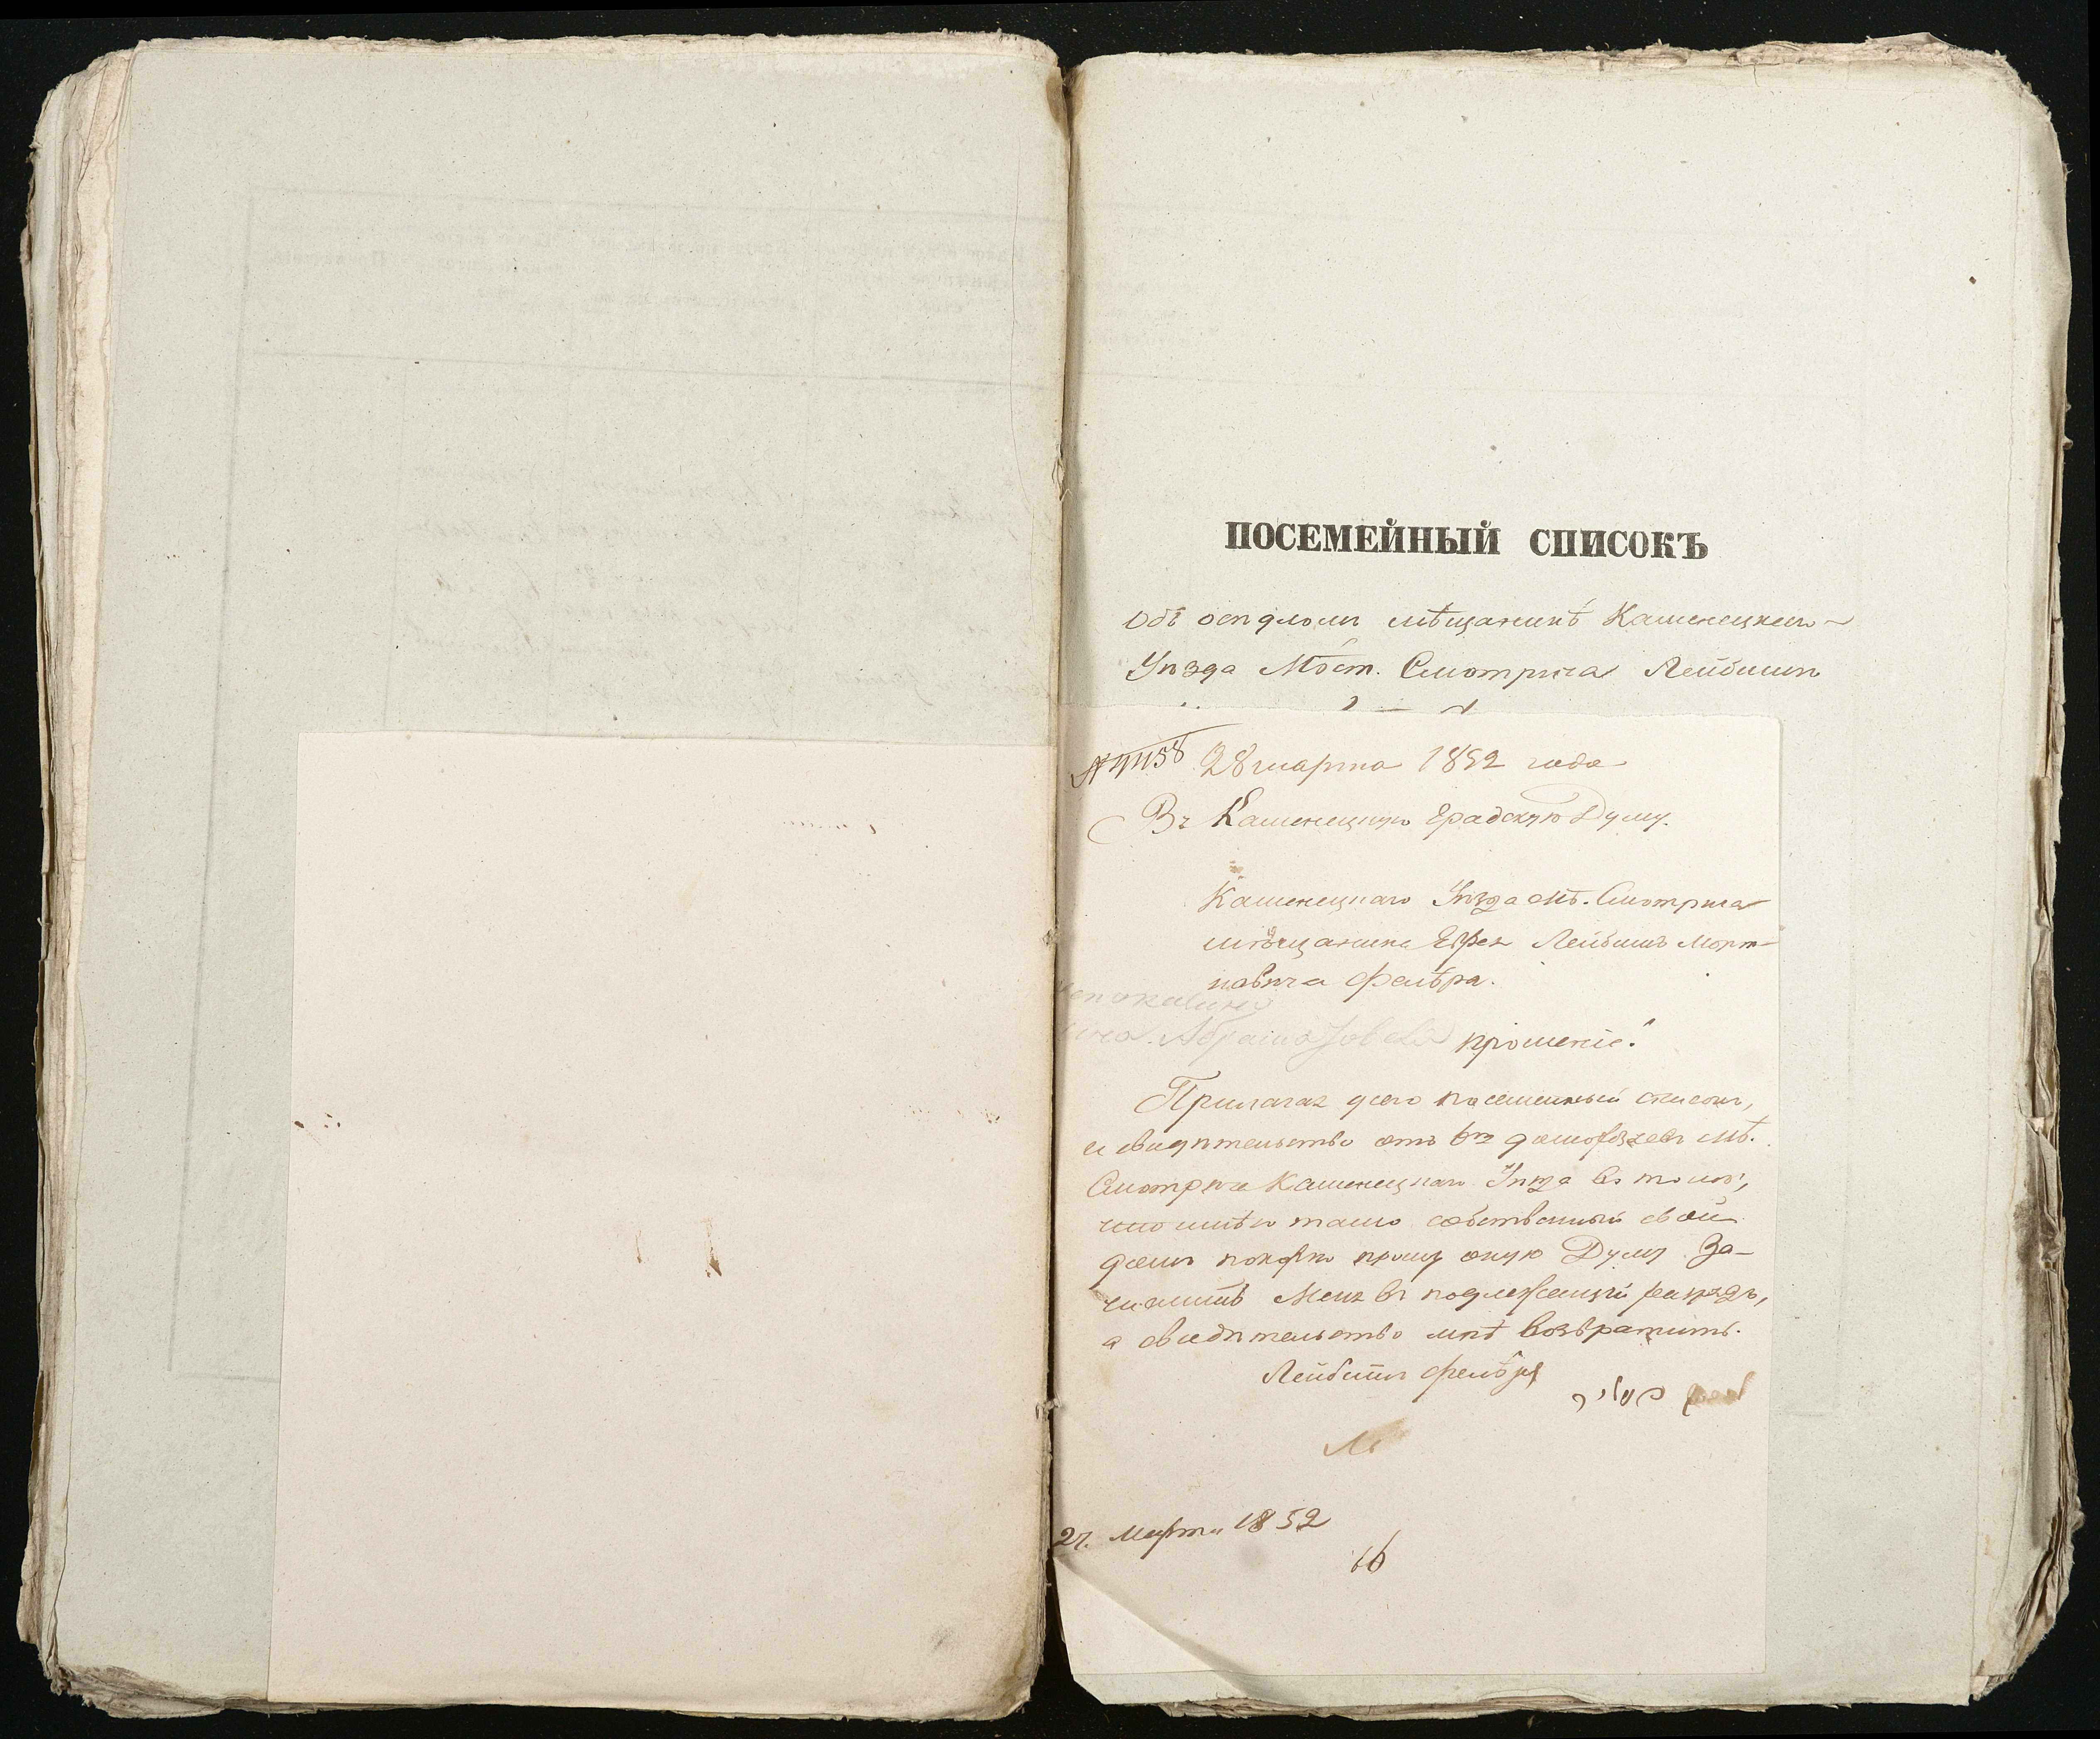 ПОСЕМЕЙНЫЙ СПИСОКЪ
Объ осѣдломъ мѣщанинѣ Каменецкаго
Уѣзда Мѣст. Смотрича Лейбишъ
28 марта 1852 года
Въ Каменецкую Градскую Думу.
Каменецкаго Уѣзда Мѣ. Смотрича
мѣщанина Еврея Лейбишъ Морт-
ковича Фельера.
прошеніе.
Прилагая у сего посемейный списокъ,
и свидѣтельство отъ 6ти домохозяевъ Мѣ.
Смотрича Каменецкаго Уѣзда въ томъ,
что имѣю тамо собственный свой
домъ покорно прошу оную Думу За-
числить Меня въ подлежащій разрядъ,
а свидѣтельство мнѣ возвратить.
Лейбишъ
27. Марта 1852